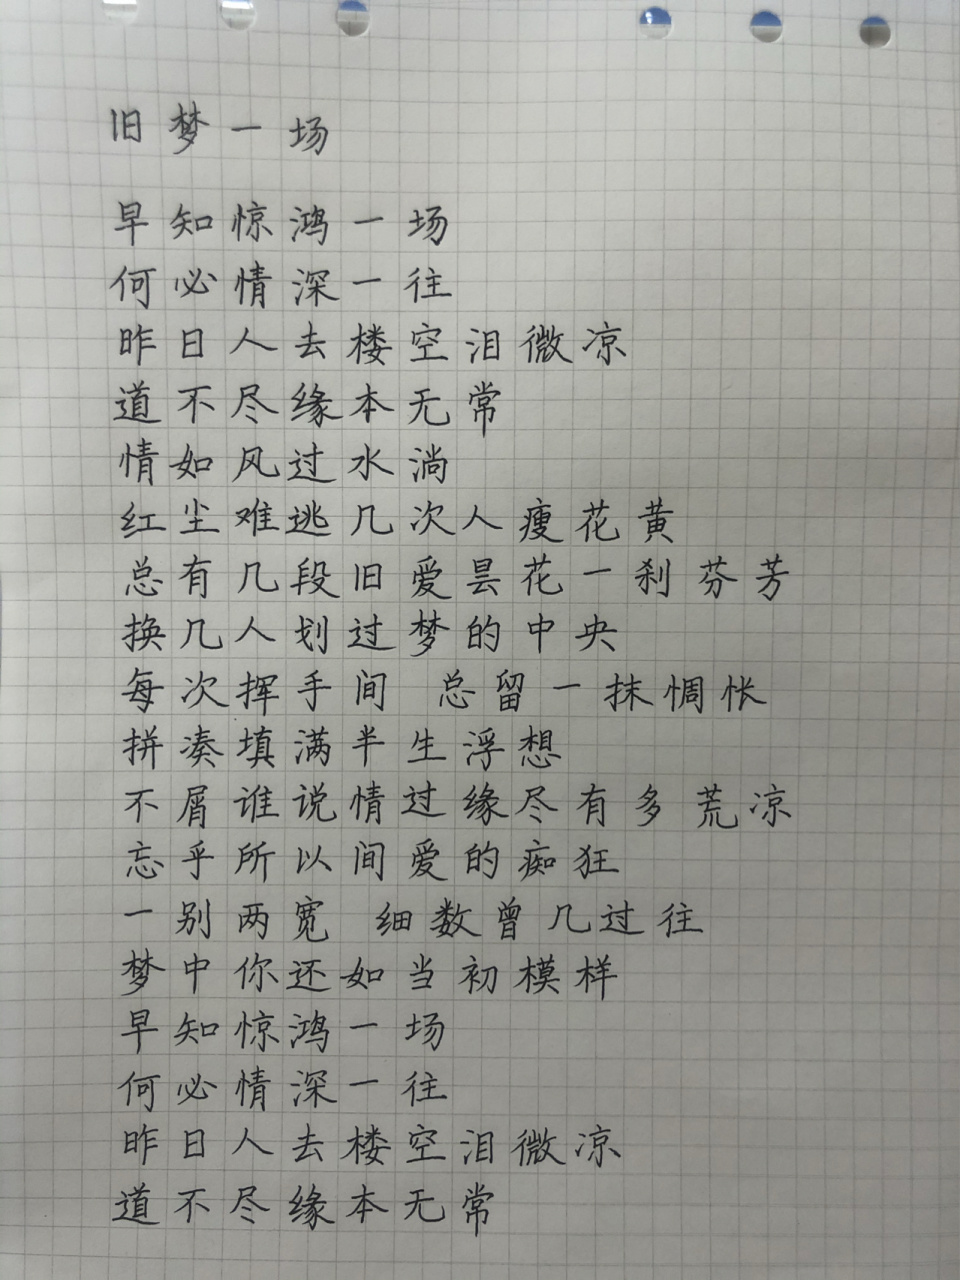 旧梦一场
早知惊鸿一场
何必情深一往
昨日人去楼空泪微凉
道不尽缘本无常
情如风过水淌
红尘难逃几次人瘦花黄
总有几段旧爱昙花一刹芬芳
换几人划过梦的中央
每次挥手间 总留一抹惆怅
拼凑填满半生浮想
不屑谁说情过缘尽有多荒凉
忘乎所以间爱的痴狂
一别两宽 细数曾几过往
梦中你还如当初模样
早知惊鸿一场
何必情深一往
昨日人去楼空泪微凉
道不尽缘本无常